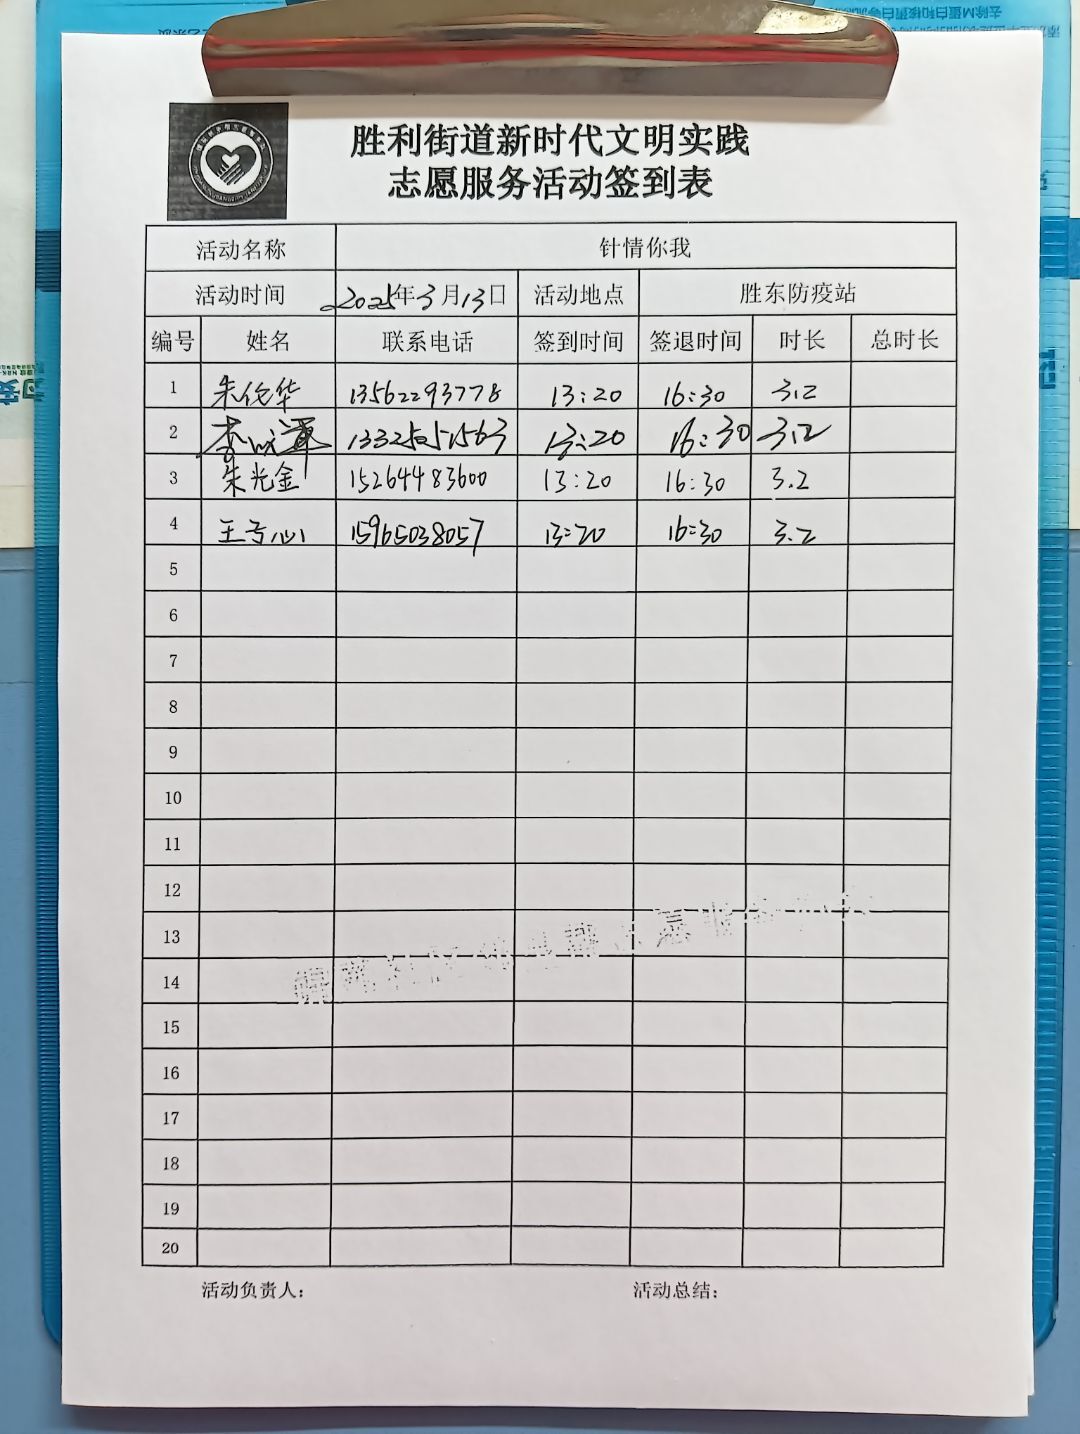 胜利街道新时代文明实践
志愿服务活动签到表
活动名称 针情你我
活动时间 2025年3月13日 活动地点 胜东防疫站
编号 姓名 联系电话 签到时间 签退时间 时长 总时长
1 朱伦华 13562293778 13:20 16:30 3.2
2 13:20 16:30 3.2
3 朱光金 15264483600 13:20 16:30 3.2
4 15965038057 13:20 16:30 3.2
5
6
7
8
9
10
11
12
13
14
15
16
17
18
19
20
活动负责人： 活动总结：